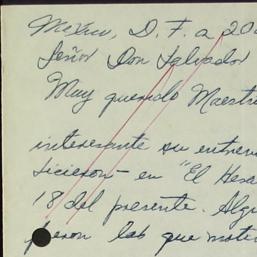 Mexico, D. F. a 20
Señor Don Salvador
Muy querido Maestr
interesante su entrev
hicieron - en "El Hera
18 del presente. Algu
fueron las que moti